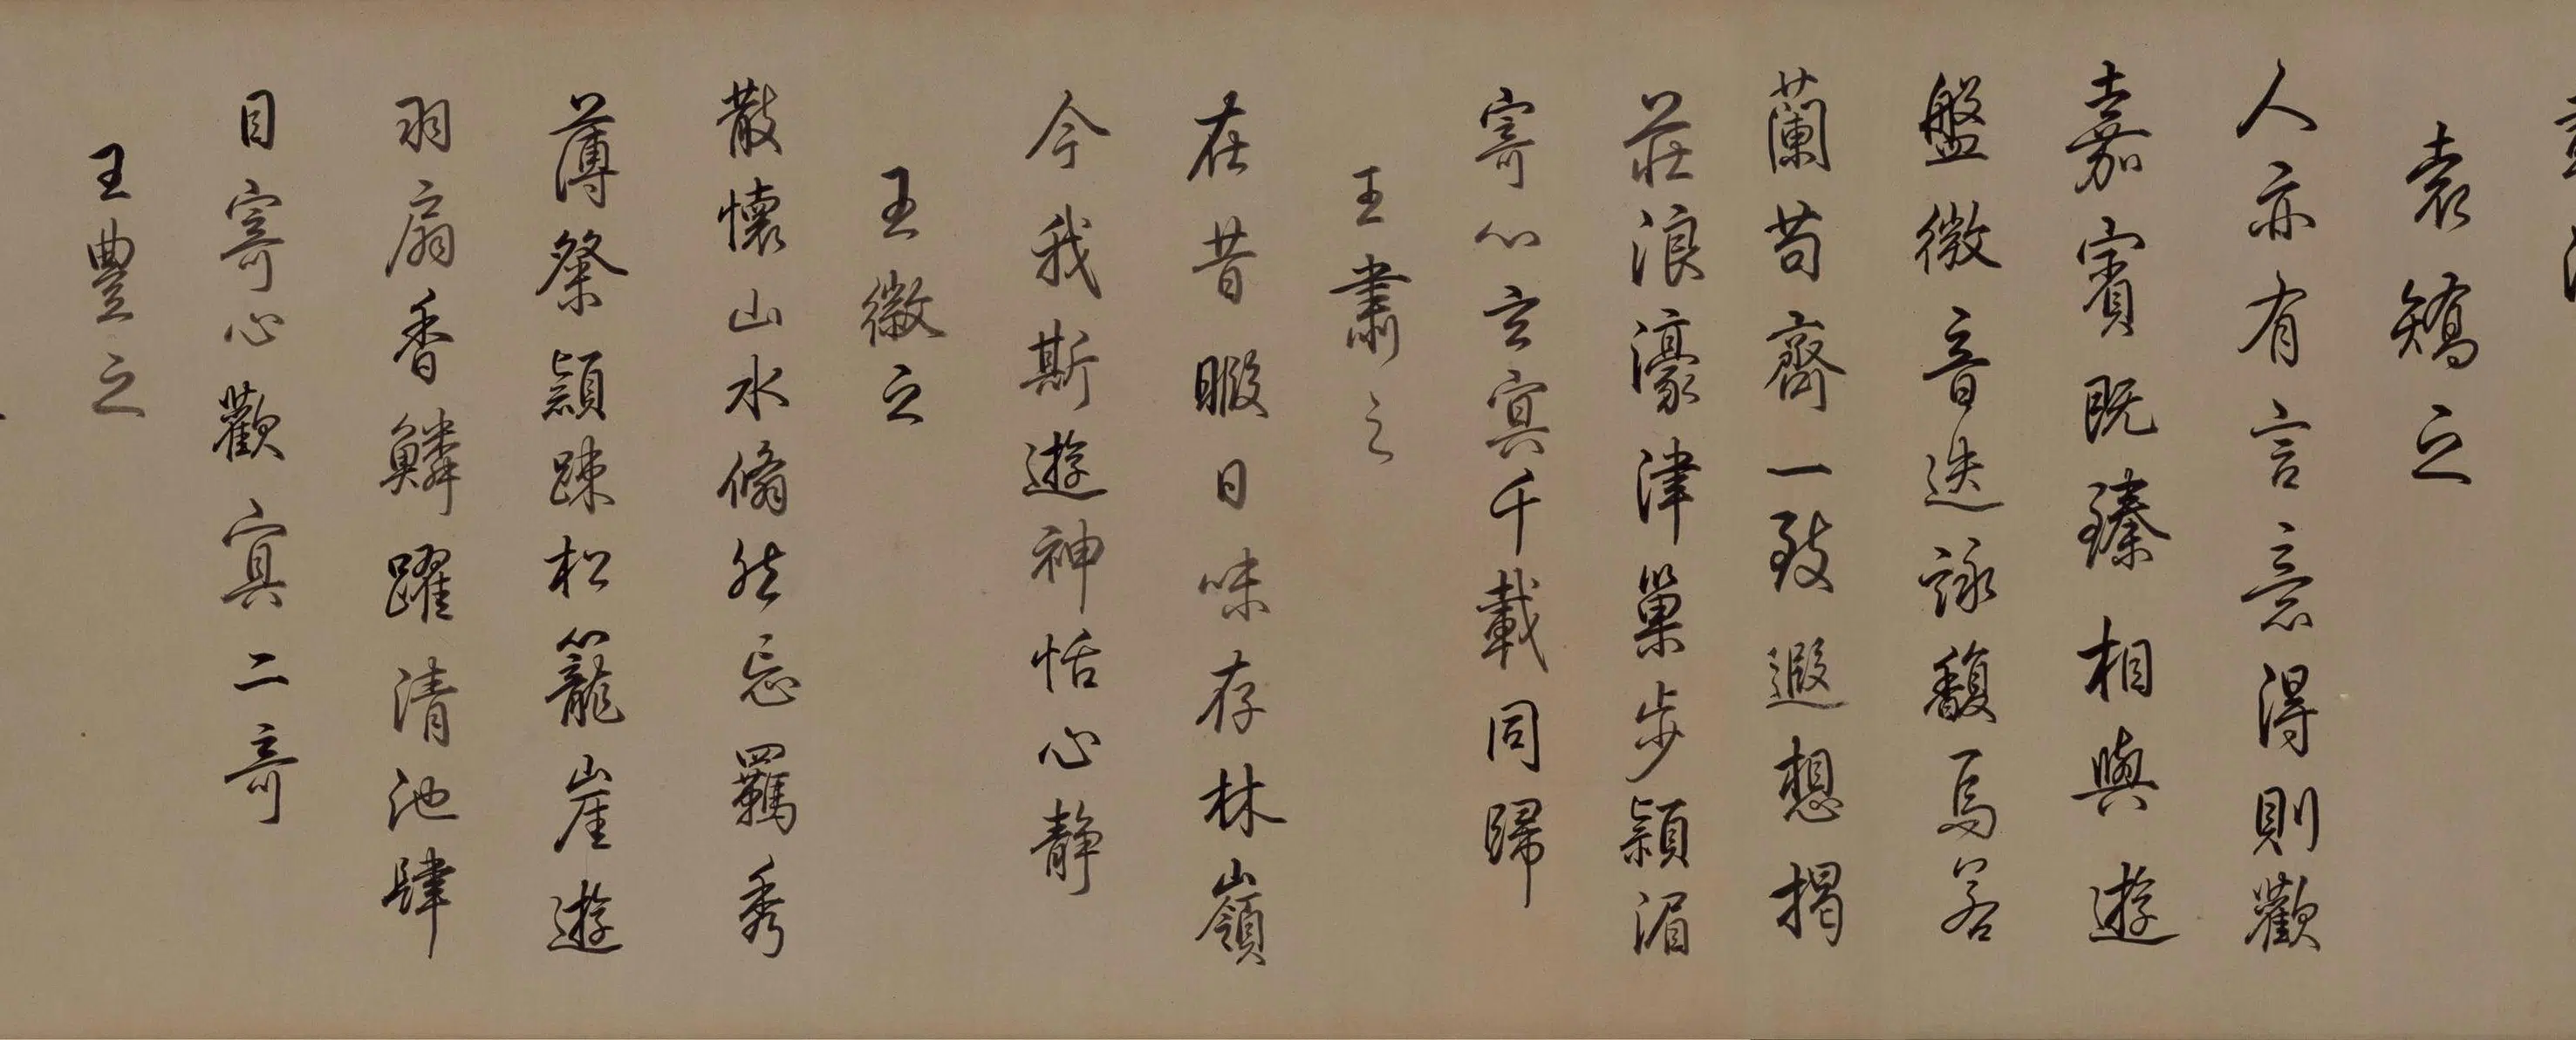 袁矯之
人亦有言意得則歡
嘉賓既臻相與遊
盤微音迭詠馥焉若
蘭苟齊一致遐想揭
莊浪濠津巢步潁湄
寄心玄冥千載同歸
王肅之
在昔暇日味存林嶺
今我斯遊神恬心静
王徽之
散懷山水翛然忘羈秀
薄粲穎踈松籠崖遊
羽扇香鱗躍清池肆
目寄心歡冥二奇
王豊之